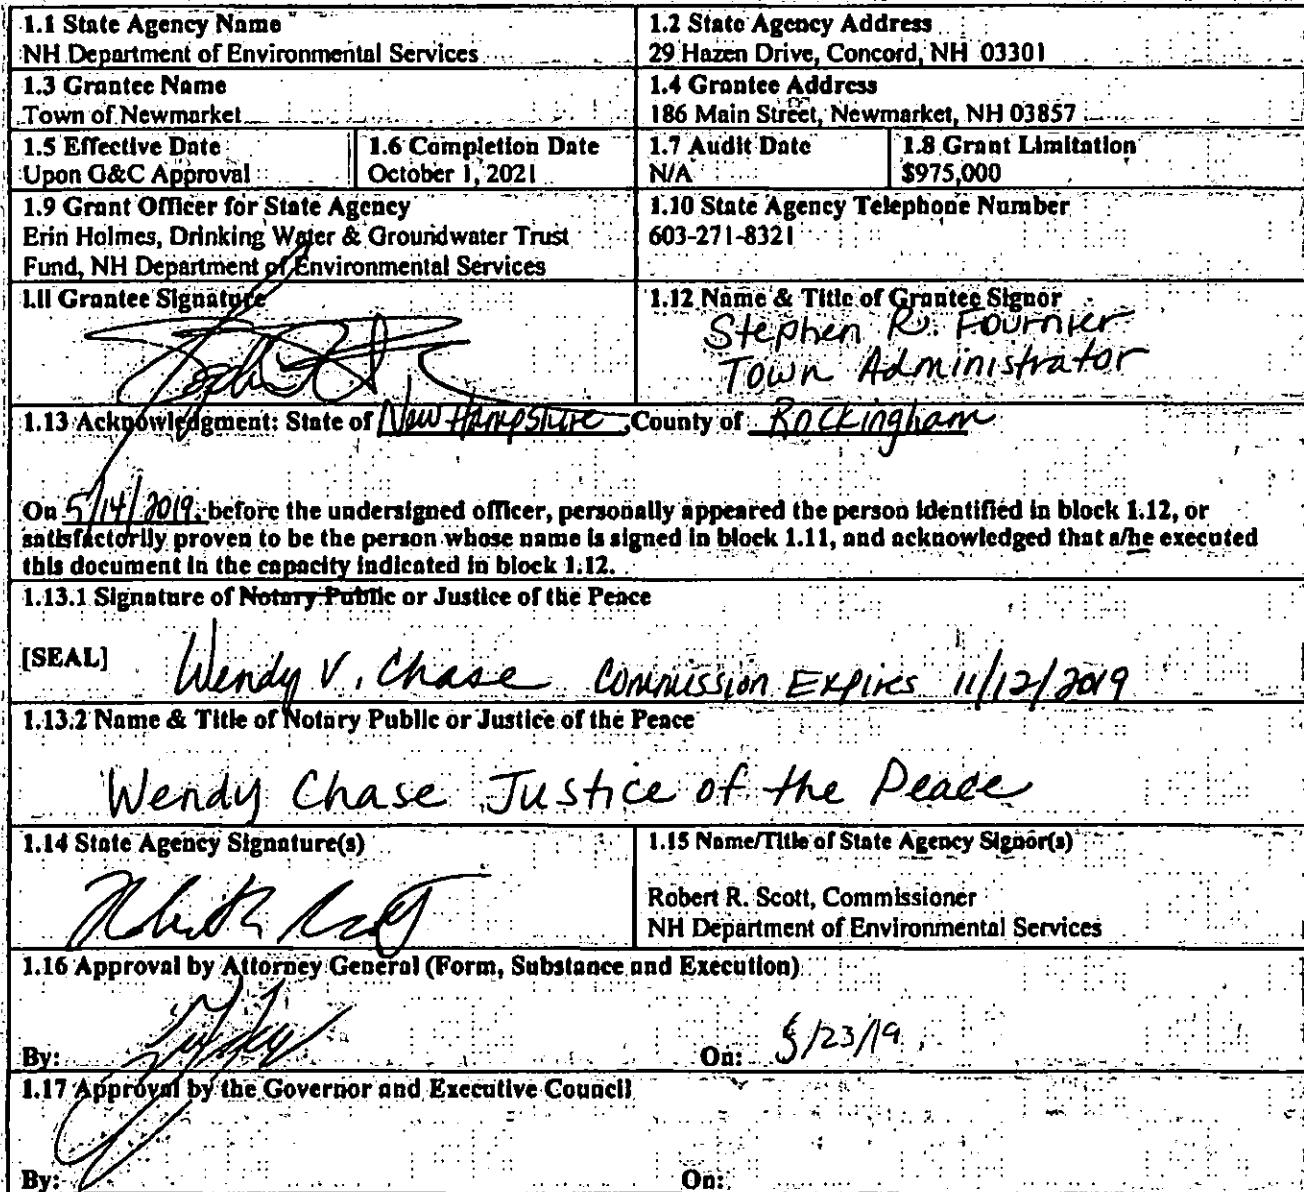 1.1 State Agency Name
NH Department of Environmental Services
1.2 State Agency Address
29 Hazen Drive, Concord, NH 03301
1.3 Grantee Name
Town of Newmarket
1.4 Grantee Address
186 Main Street, Newmarket, NH 03857
1.5 Effective Date
Upon G&C Approval
1.6 Completion Date
October 1, 2021
1.7 Audit Date
N/A
1.8 Grant Limitation
$975,000
1.9 Grant Officer for State Agency
Erin Holmes, Drinking Water & Groundwater Trust
Fund, NH Department of Environmental Services
1.10 State Agency Telephone Number
603-271-8321
1.11 Grantee Signature
1.12 Name & Title of Grantee Signor
Stephen R. Fournier
Town Administrator
1.13 Acknowledgment: State of New Hampshire, County of Rockingham
On 5/14/2019, before the undersigned officer, personally appeared the person identified in block 1.12, or
satisfactorily proven to be the person whose name is signed in block 1.11, and acknowledged that s/he executed
this document in the capacity indicated in block 1.12.
1.13.1 Signature of Notary Public or Justice of the Peace
[SEAL] Wendy V. Chase Commission Expires 11/12/2019
1.13.2 Name & Title of Notary Public or Justice of the Peace
Wendy Chase Justice of the Peace
1.14 State Agency Signature(s)
1.15 Name/Title of State Agency Signor(s)
Robert R. Scott, Commissioner
NH Department of Environmental Services
1.16 Approval by Attorney General (Form, Substance and Execution)
By: On: 5/23/19
1.17 Approval by the Governor and Executive Council
By: On: